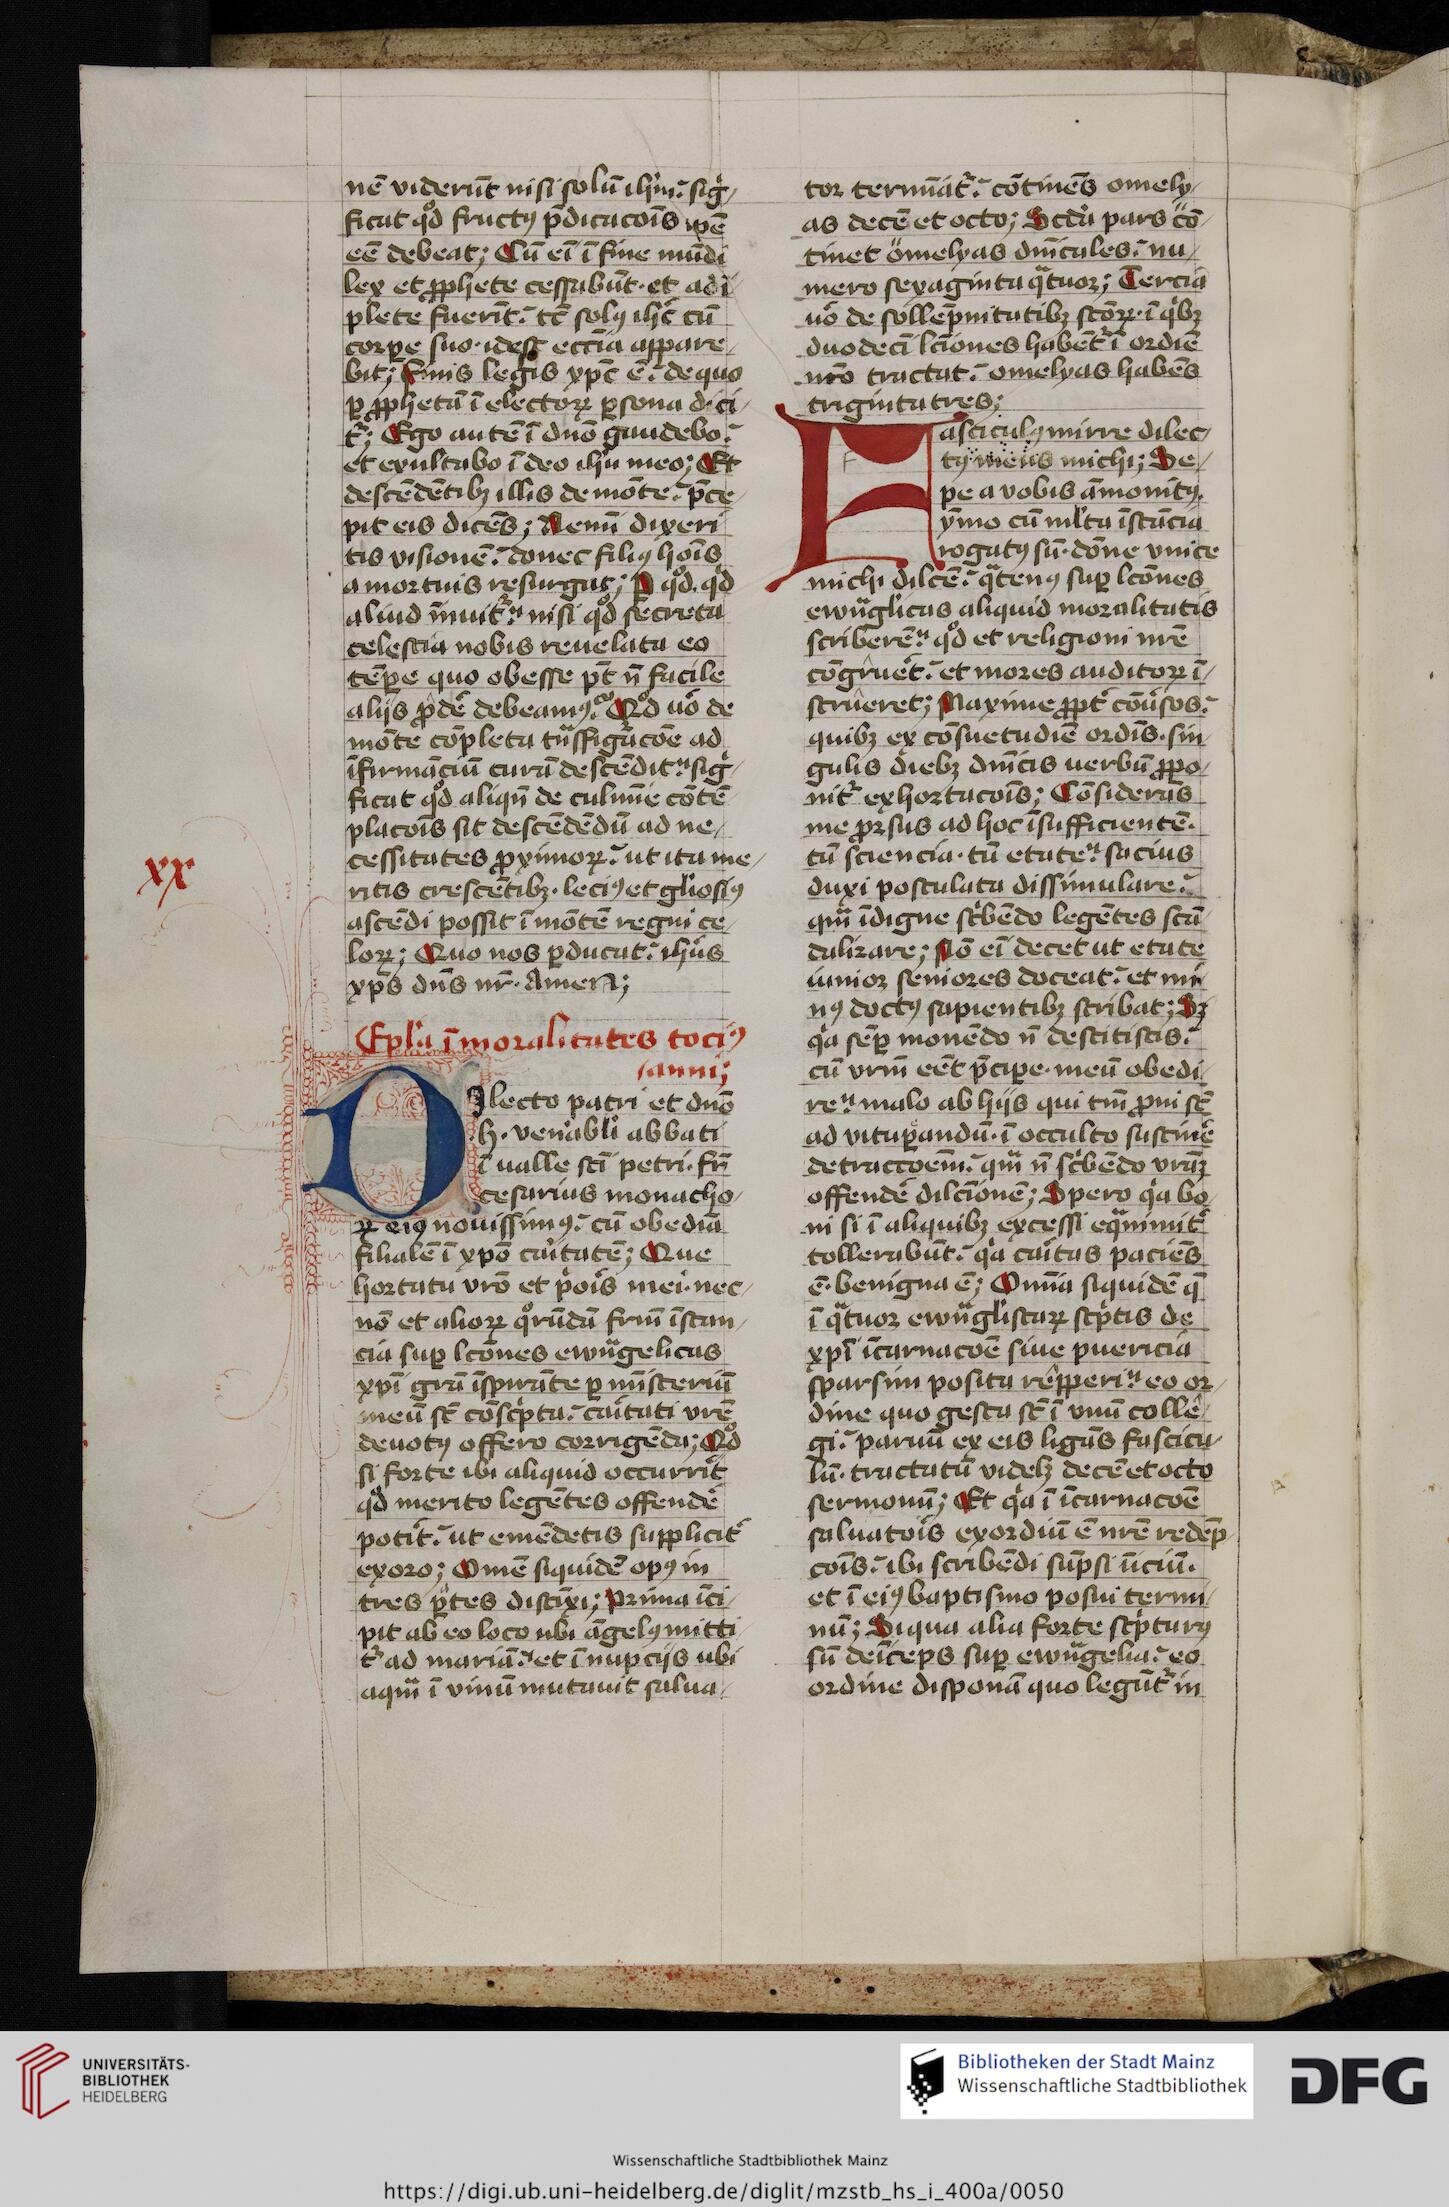 nē viderūt nisi solū ihm̄. sig̾
ficat qd̊ fructꝰ p̄dicacōis spē
eē debeat; Cū ei ī fine mūdi
lex et ꝓphete cessabūt. et adī
plete fuerīt. tc̄ solꝰ ihc̄ cū
corꝑe suo. idest eccīa appare
bit; Finis legis xpc̄ ē. de quo
ꝑ ꝓphetā ī electorꝝ ꝑsona dici
t̾; Ego autē ī dn̄o gaudebo.
et exultabo ī deo ihū meo; Et
descēdētibꝫ illis de mōte. p̄ce
pit eis dicēs; Nemī dixeri
tis visionē. donec filiꝰ hoīs
a mortuis resurgat; P qd̊. qd̊
aliud īnuit̾. nisi qd̊ secreta
celestia nobis reuelata eo
tēꝑe quo obesse pt̄ n̄ facile
alijs ꝓdē debeamꝰ. Qd̊ uō de
mōte cōpleta trāsfig̾acōe ad
īfirmanciū curā descēdit. sig̾
ficat qd̊ aliqn̄ de culmīe cōtē
placōis sit descēdēdū ad ne
cessitates ꝓximorꝝ. ut ita me
ritis crescētibꝫ. leciꝰ et gl̄iosiꝰ
ascēdi possit ī mōtē regni ce
lorꝝ; Quo nos ꝑducat. ihūs
xp̄s dn̄s nr̄. Amen;
xx
Epl̄a ī moralitates tociꝰ
anni;
Dilecto patri et dn̄o
.h. ven̾abl̾i abbati
ī ualle sc̄i petri. fr̄
cesarius monacho
ꝝ eiꝰ nouissimꝰ. cū obediā
filialē ī xp̄o cāitatē; Que
hortatu vr̄o et p̾ois mei. nec
nō et aliorꝝ q̊rūdā frm̄ īstan
cia suꝑ lcōnes ewāgelicas
xp̄i grā īspirāte ꝑ mīsteriū
meū st̄ cōsc̾pta. cāitati vr̄e
deuotꝰ offero corrigēda; Qd̊
si forte ibi aliquid occurrīt
qd̊ merito legētes offendē
potīt. ut emēdetis suppliciter
exoro; Omē siquidē opꝰ in
tres ꝑtes distīxi; Prima īci
pit ab eo loco ubi āgelꝰ mitti
t̾ ad mariā. et ī nupcijs ubi
aqm̄ ī vinū mutauit salua
tor termīat̾. cōtinēs omely
as decē et octo; Scd̄a pars cō
tinet omelyas dn̄icales. nu
mero sexaginta q̾tuor; Tercia
uō de sollēpnitatibꝫ sc̄orꝝ. ī q̾bꝫ
duodecī lcīones habēt̾ ī ordiē
nr̄o tractat. omelyas habēs
triginta tres;
Fasciculꝰ mirre dilec
tꝰ meus michi; Se
pe a vobis āmonitꝰ.
ymo cū ml̄ta īstācia
rogatꝰ sū. dōne vnice
michi dilcē. q̾tenꝰ suꝑ lcōnes
ewāgl̾icas aliquid moralitatis
scriberē. qd̊ et religioni nr̄e
cōgruēt. et mores auditorꝝ ī
strueret; Maxime ꝓpt̾ cōūsos.
quibꝫ ex cōsuetudīe ordīs. sin
gulis diebꝫ dn̄icis uerbū ꝓpo
nit̾ exhortacōis; Cōsiderās
me ꝓrsus ad hoc īsufficientē.
tū sciencia. tū etate. sacius
duxi postulata dissimulare.
qm̄ īdigne sc̾bēdo legētes scā
dalizare; Nō ei decet ut etate
iunior seniores doceat. et mi
nꝰ doctꝰ sapientibꝫ scribat; Sꝫ
q̾a sēꝑ monēdo n̄ destitistis.
cū vrm̄ eēt p̄ciꝑe. meū obedi
re. malo ab hijs qui tm̄ ꝓni st̄
ad vituꝑandū. ī occulto sustinē
detraccōem. qm̄ n̄ sc̾bēdo vrāꝫ
offendē dilcīonē; Spero q̾a bo
ni si ī aliquibꝫ excessi eq̾nimit̾
tollerabūt. q̾a cāitas paciēs
ē. benigna ē; Omīa siquidē q̄
ī q̾tuor ewāgl̾istarꝝ sc̾ptis de
xp̄i īcarnacōe siue puericia
sparsim posita reꝑperi. eo or
dine quo gesta st̄ ī vnū collē
gi. paruū ex eis ligās fascicu
lū. tractatū videlꝫ decē et octo
sermonū; Et q̾a ī īcarnacōe
saluatoīs exordiū ē nr̄e redēp
cōis. ibi scribēdi sūpsi īiciū.
et ī eiꝰ baptismo posui termi
nū; Si qua alia forte sc̾pturꝰ
sū deīceps suꝑ ewāgelia. eo
ordine disponā quo legūt̾ in
UNIVERSITÄTS-
BIBLIOTHEK
HEIDELBERG
Bibliotheken der Stadt Mainz
Wissenschaftliche Stadtbibliothek
DFG
Wissenschaftliche Stadtbibliothek Mainz
https://digi.ub.uni-heidelberg.de/diglit/mzstb_hs_i_400a/0050